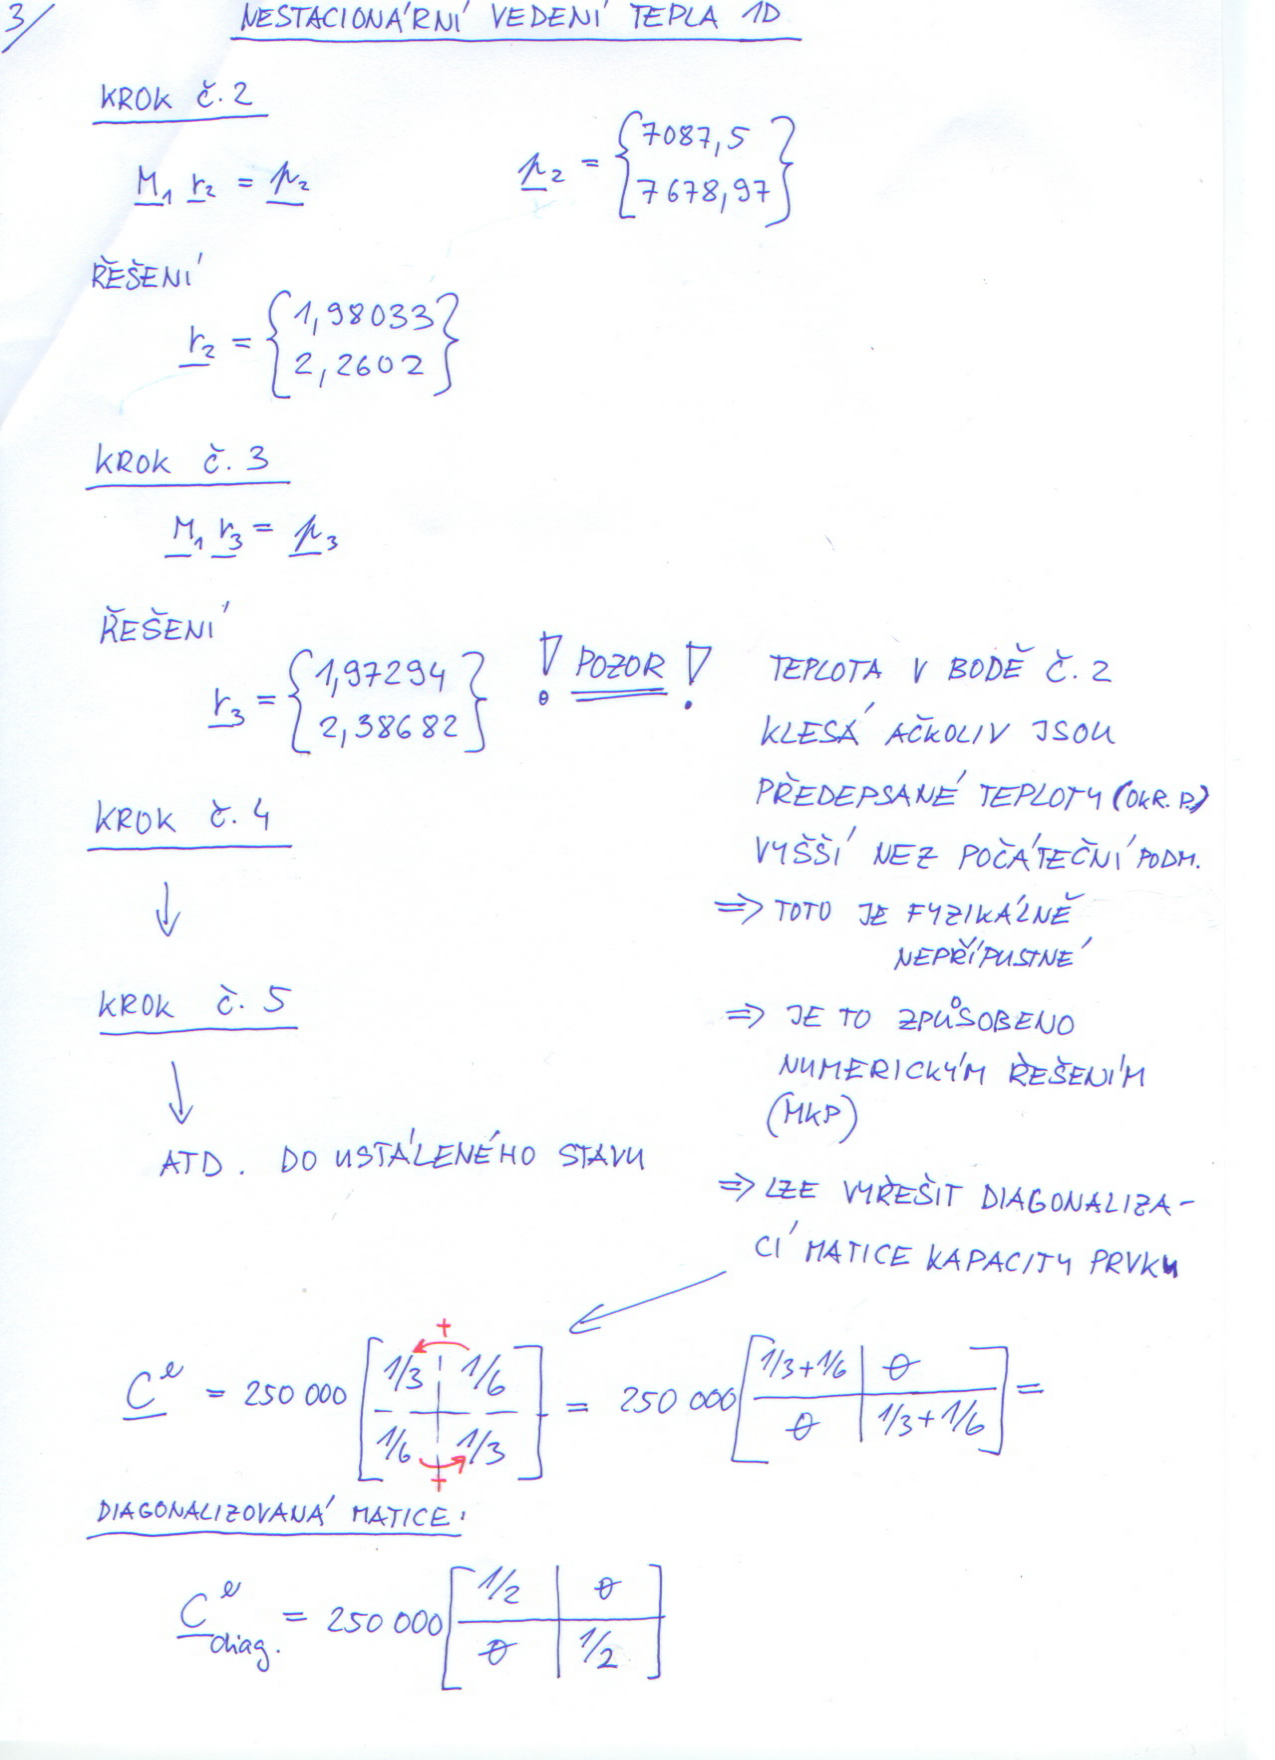 3/ NESTACIONÁRNÍ VEDENÍ TEPLA 1D
KROK Č. 2
M₁ r₂ = p₂
p₂ = {7087,5
7678,97}
ŘEŠENÍ
r₂ = {1,98033
2,2602}
KROK Č. 3
M₁ r₃ = p₃
ŘEŠENÍ
r₃ = {1,97294
2,38682}
! POZOR !
TEPLOTA V BODĚ Č. 2
KLESÁ AČKOLIV JSOU
PŘEDEPSANÉ TEPLOTY (OKR. P.)
VYŠŠÍ NEZ POČÁTEČNÍ PODM.
⇒ TOTO JE FYZIKÁLNĚ
NEPŘÍPUSTNÉ
⇒ JE TO ZPŮSOBENO
NUMERICKÝM ŘEŠENÍM
(MKP)
⇒ LZE VYŘEŠIT DIAGONALIZA-
CÍ MATICE KAPACITY PRVKU
KROK Č. 4
↓
KROK Č. 5
↓
ATD. DO USTÁLENÉHO STAVU
+
Cᵉ = 250 000 [1/3 1/6
1/6 1/3] = 250 000 [1/3+1/6 0
0 1/3+1/6] =
+
DIAGONALIZOVANÁ MATICE:
Cᵉdiag. = 250 000 [1/2 0
0 1/2]